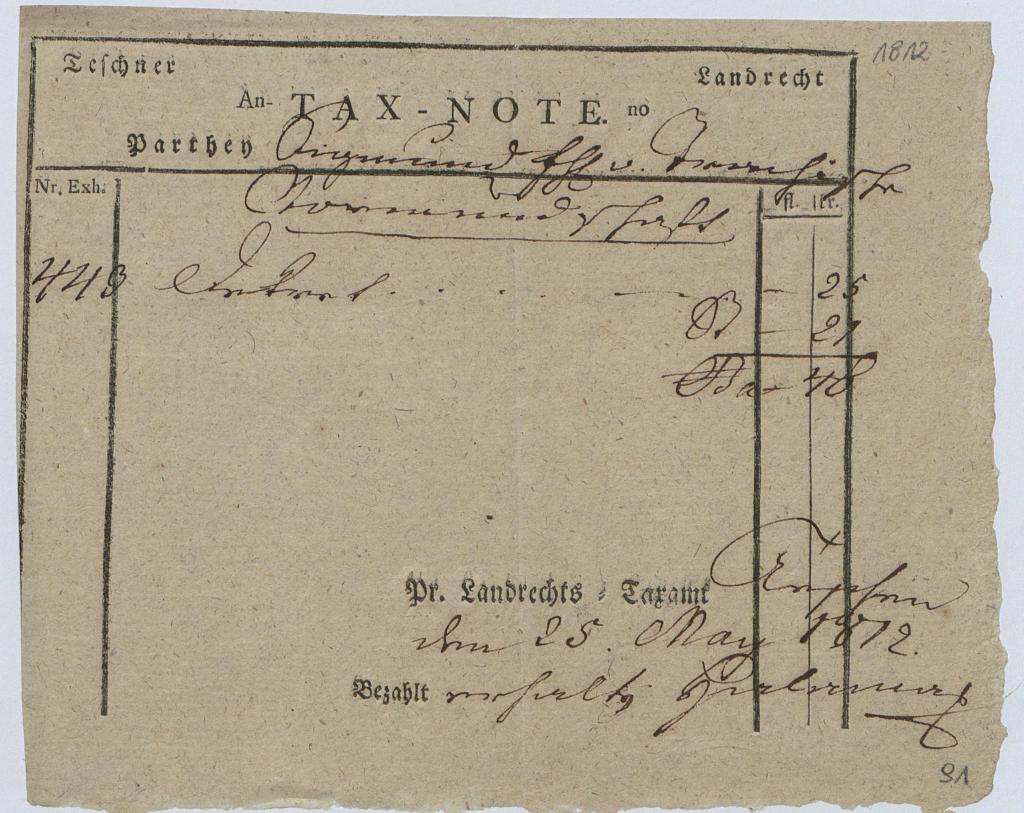 1812
Teschner Landrecht
An- TAX-NOTE. no
Parthey Sigmund v.
Nr. Exh: Vormundschaft fl. kr.
443 Dekret . . . . — — 25
St — 21
48
Pr. Landrechts-Taxamt Teschen
den 25. May 1812.
Bezahlt erhalten
91